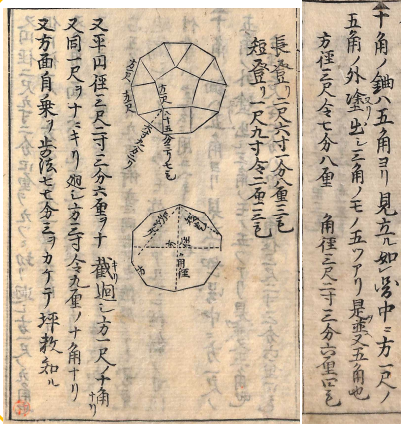 十角ノ鈿ハ五角ヨリ見立ル如シ當中ニ方一尺ノ
五角ノ外塗出シ三角ノモノ五ツアリ是並又五角也
方徑三尺令七分八厘 角徑三尺二寸三分六厘
長登リ二尺六寸一分八厘三毛
短登リ一尺九寸令二厘二毛
方一尺
方一尺
角徑
方
又平円径三尺二寸三分六厘ヲ十ニ截廻シ方一尺ノ十角ナリ
又同一尺ヲ十ニキリ廻シ方三寸令九厘ノ十角ナリ
又方面自ノ乗ヲ歩法七七分三ヲカケテ坪数知ル